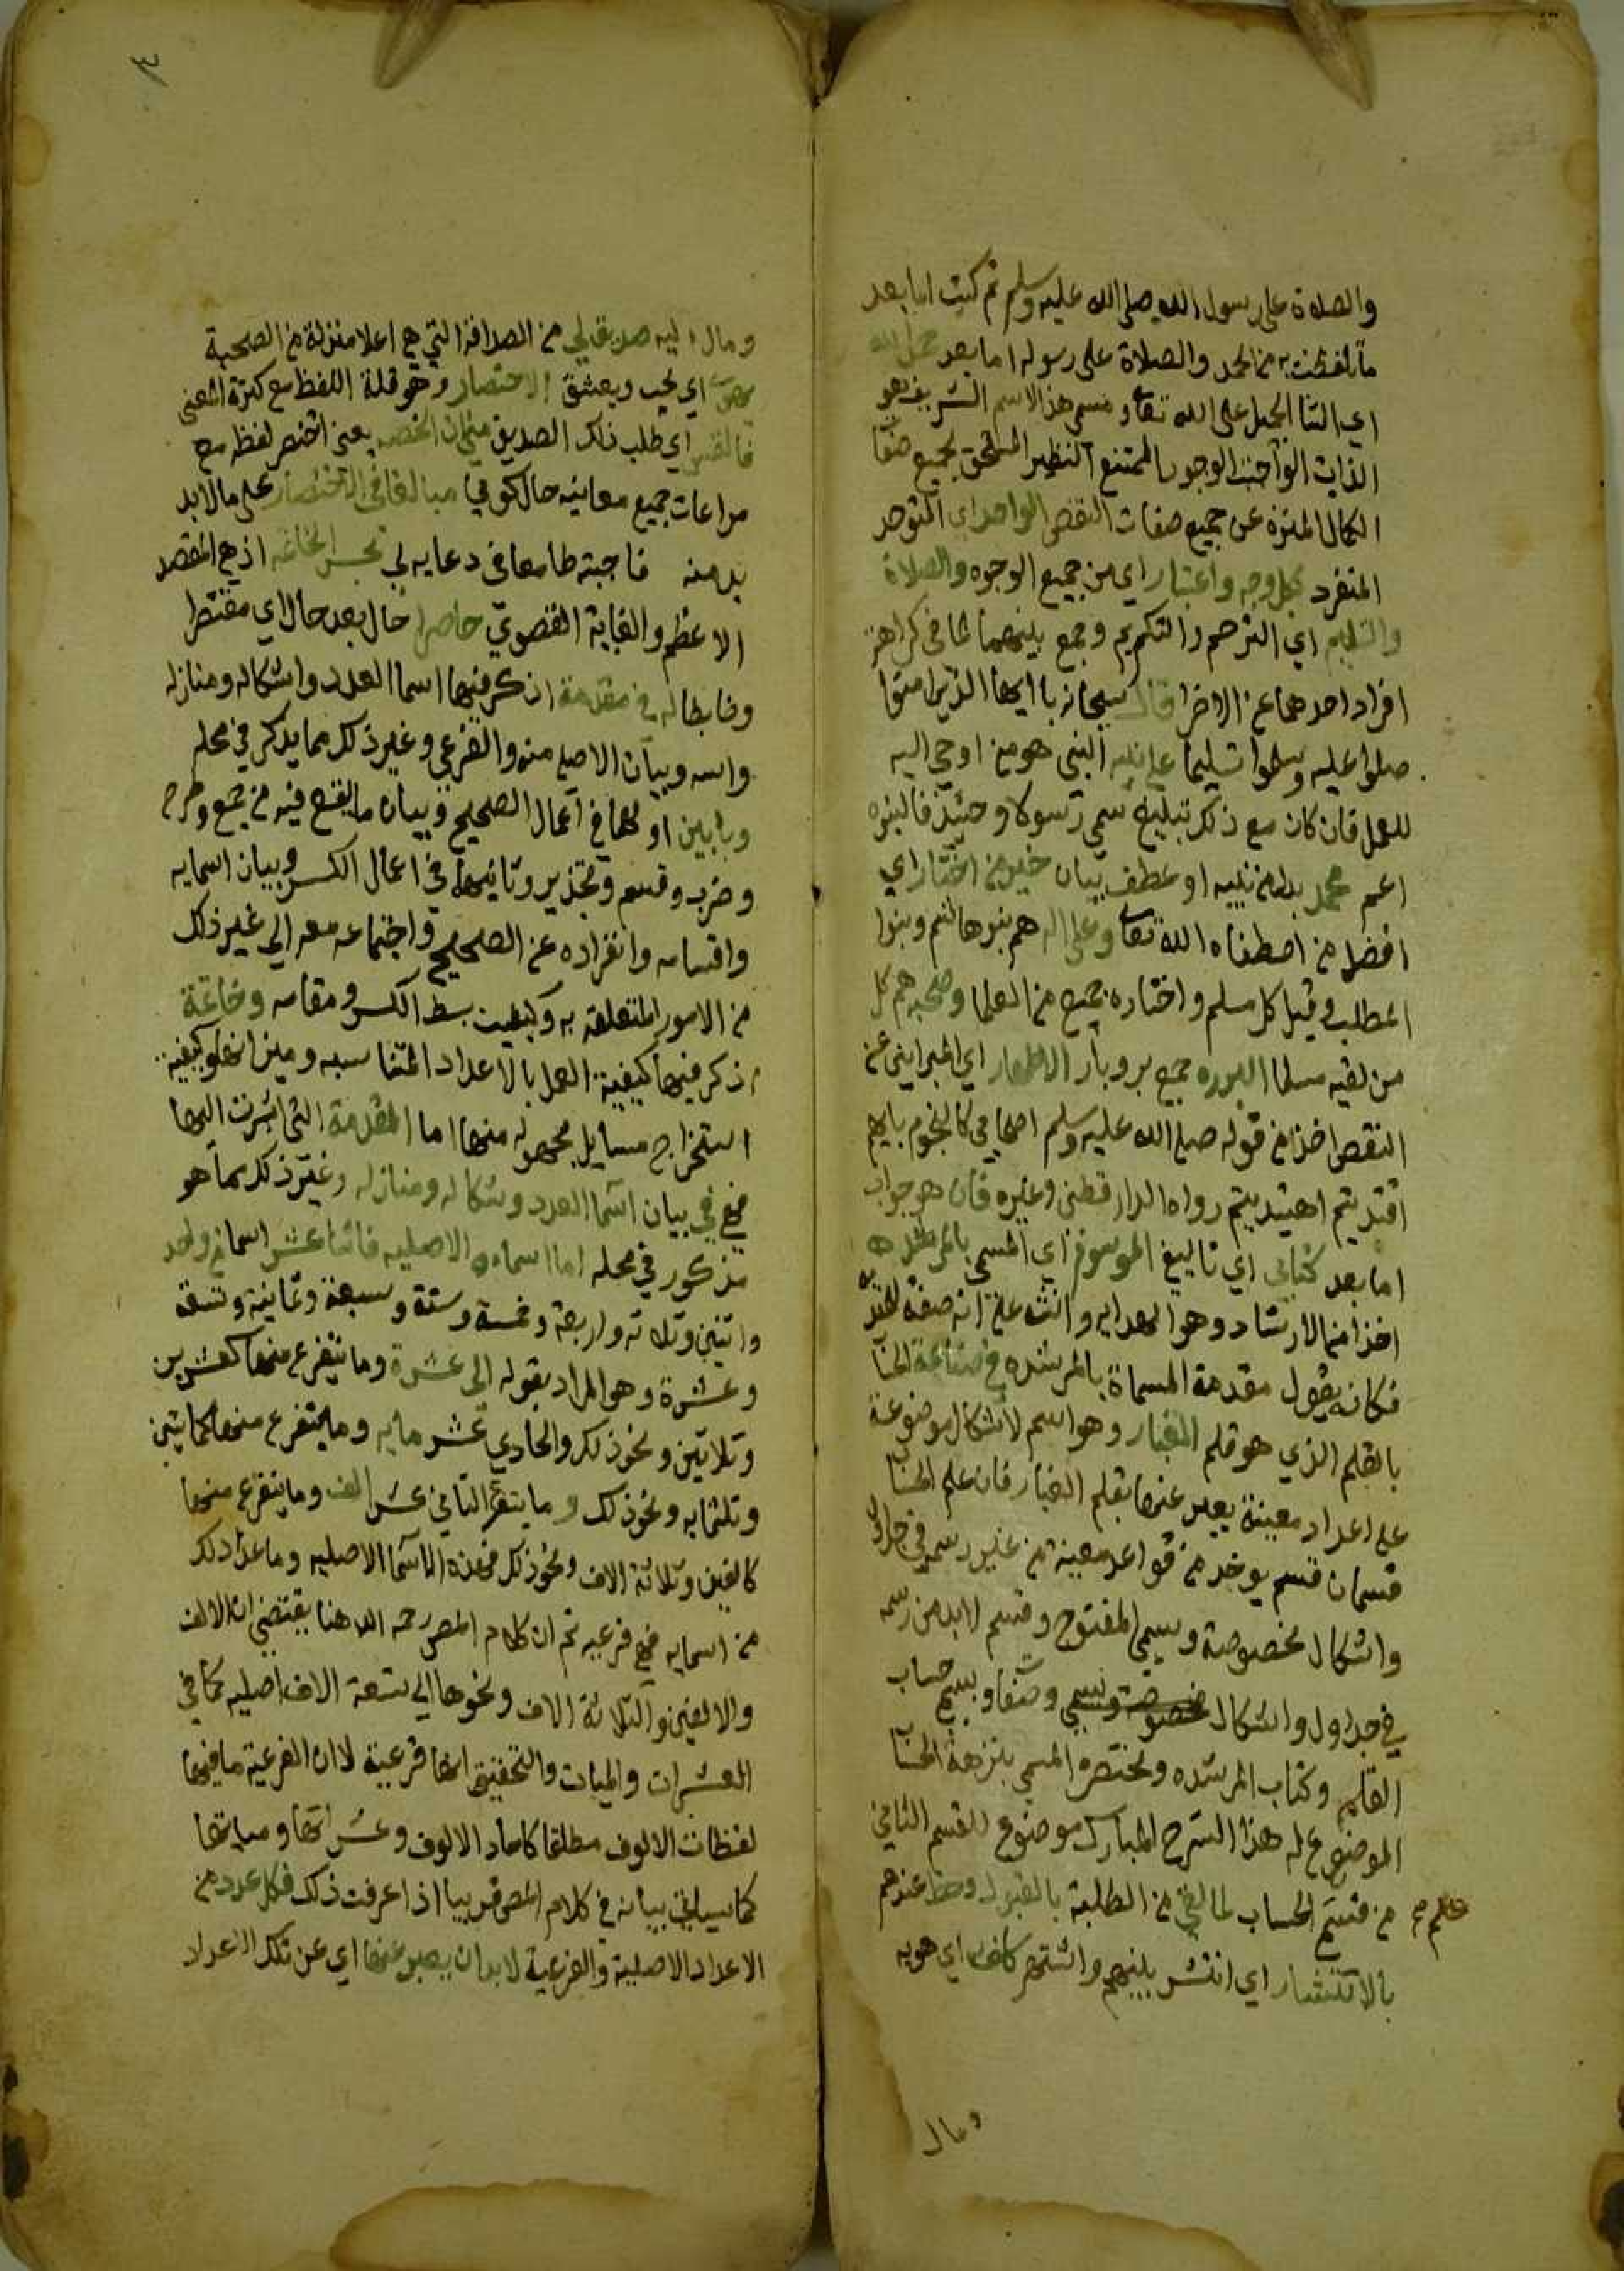 والصلاة على رسول الله صلى الله عليه وسلم ثم كتبت اما بعد
ما تلفظت به من الحمد والصلاة على رسوله اما بعد حمد الله
اي الثنا الجميل على الله تعا ومسمى هذا الاسم الشريف هو
الذات الواجب الوجود الممتنع النظير المستحق لجميع صفا
الكمال المنزه عن جميع صفات النقص الواحد اي المتوحد
المنفرد بكل وجه واعتبار اي من جميع الوجوه والصلاة
والتسليم اي الترحم والتكريم وجمع بينهما لما في كراهة
افراد احدهما عن الاخر قال سبحانه يا ايها الذين امنوا
صلوا عليه وسلموا تسليما على نبيه النبي هو من اوحي اليه
للعمل فان كان مع ذلك تبليغ سمي رسولا وحينئذ فالنبوه
اعم محمد بدل من نبيه او عطف بيان خير من اختار اي
افضل من اصطفاه الله تعا وعلى اله هم بنوا هاشم وبنوا
المطلب وقيل كل مسلم واختاره جمع من العلما وصحبه هم كل
من لقيه مسلما البرره جمع بر وبار الاطهار اي المبراين عن
النقص اخذا من قوله صلى الله عليه وسلم اصحابي كالنجوم بايهم
اقتديتم اهتديتم رواه الدارقطني وغيره فان هو جواب
اما بعد كتابي اي تاليفي الموسوم اي المسمى بالمرشده
اخذا من الارشاد وهو الهدايه وانثه على انه صفة لمقدمة
فكانه يقول مقدمة المسماة بالمرشده في صناعة الحسا
بالقلم الذي هو قلم الغبار وهو اسم لاشكال موضوعة
على اعداد معينة يعبر عنها بقلم الغبار فان علم الحسا
قسمان قسم يوخذ من قواعد معينة من غير رسم في جداول
واشكال مخصوصة ويسمى المفتوح وقسم لا بد من رسمه
في جداول واشكال مخصوصة ويسمى حساب
القلم وكتاب المرشده ومختصره المسمى بنزهة الحسا
الموضوع له هذا الشرح المبارك موضوع للقسم الثاني
علم من قسمي الحساب لما لقي من الطلبة بالقبول وحظ عندهم
بالاشتهار اي انتشر بينهم واشتهر كلف اي هويه
ومال
٣
ومال اليه صديق لي من الصداقة التي هي اعلا منزلة من الصحبة
يهوى اي يحب ويعشق الاختصار وهو قلة اللفظ مع كثرة المعنى
فالتمس اي طلب ذلك الصديق مني ان اختصره يعني اختصر لفظه مع
مراعات جميع معانيه حال كوني مبالغا في الاختصار على ما لا بد
بد منه فاجبته طامعا في دعايه لي بحسن الخاتمه اذ هي المقصد
الاعظم والغاية القصوي حاصرا حال بعد حال اي مقتصرا
وضابطا له في مقدمة اذكر فيها اسما العدد واشكاله ومنازله
واسه وبيان الاصلي منه والفرعي وغير ذلك مما يذكر في محله
وبابين اولهما في اعمال الصحيح وبيان ما يقع فيه من جمع وطرح
وضرب وقسم وتجذير وثانيهما في اعمال الكسر وبيان اسمايه
واقسامه وانفراده عن الصحيح واجتماعه معه الى غير ذلك
من الامور المتعلقة به وكيفيت بسط الكسر ومقامه وخاتمة
اذكر فيها كيفية العمل بالاعداد المتناسبه وميزانها وكيفية
استخراج مسايل مجهوله منها اما المقدمة التي اشرت اليها
فهي في بيان اسما العدد وشكاله ومنازله وغير ذلك مما هو
مذكور في محله اما اسماءه الاصليه فاثنا عشر اسما من واحد
واثنين وثلاثه واربعة وخمسة وستة وسبعة وثمانية وتسعة
وعشرة وهو المراد بقوله الى عشرة وما يتفرع منها كعشرين
وثلاثين ونحو ذلك والحادي عشر مايه وما يتفرع منها كمايتين
وثلثمايه ونحو ذلك والثاني عشر الف وما يتفرع منها
كالفين وثلاثة الاف ونحو ذلك فهذه الاسما الاصليه وما عدا ذلك
من اسمايه فهي فرعيه ثم ان كلام المص رحمه الله هنا يقتضي ان الالف
والالفين والثلاثة الاف ونحوها الى تسعة الاف اصليه كما في
العشرات والميات والتحقيق انها فرعية لان الفرعية ما فيها
لفظات الالوف مطلقا كاحاد الالوف وعشراتها ومياتها
كما سياتي بيانه في كلام المص قريبا اذا عرفت ذلك فكل عدد من
الاعداد الاصلية والفرعية لا بد ان يعبر عنها اي عن تلك الاعداد